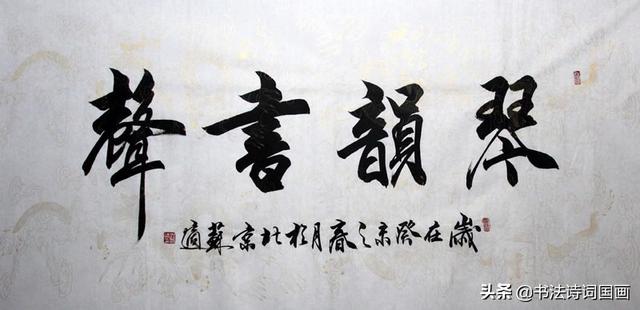 琴韻書聲
歲在癸未之春月於北京蘇適
头条@书法诗词国画